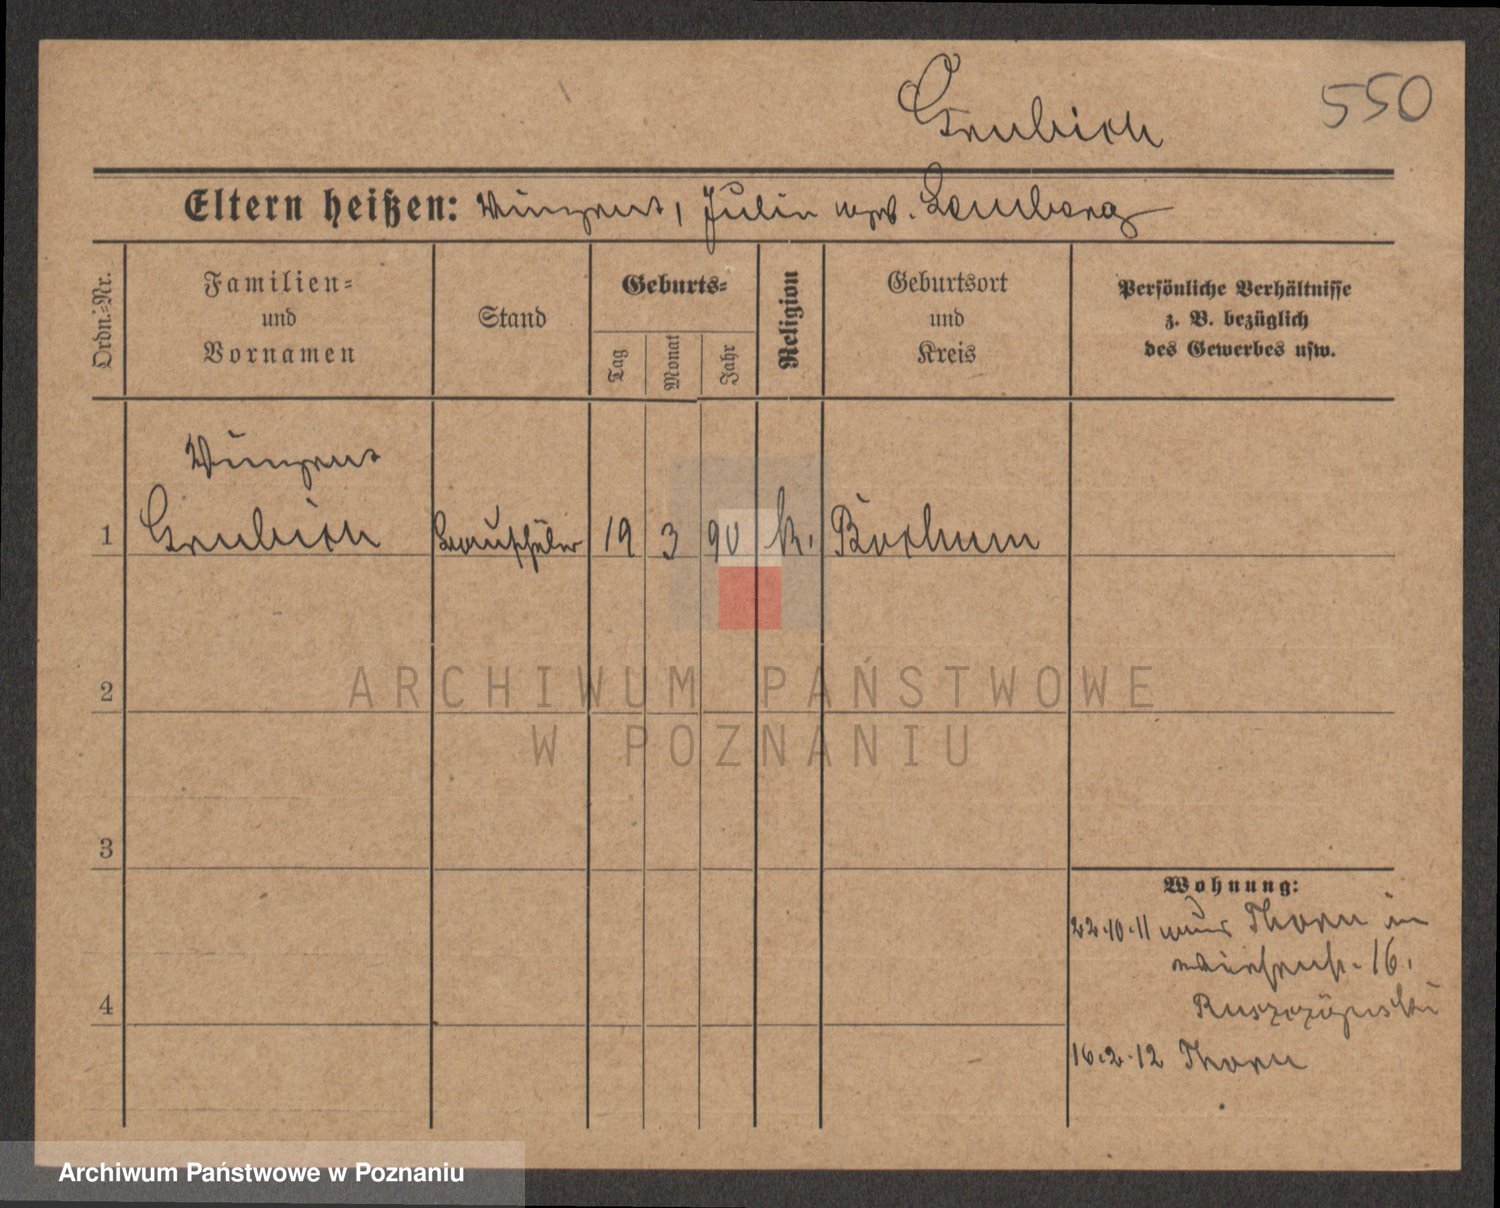 550
Grubich
Eltern heißen: Vinzent, Julie geb. Lemberg
Ordn.=Nr.
Familien=
und
Vornamen
Stand
Geburts=
Tag
Monat
Jahr
Religion
Geburtsort
und
Kreis
Persönliche Verhältnisse
z. B. bezüglich
des Gewerbes usw.
Vinzent
1 Grubich Bauschüler 19 3 90 k. Bochum
2
3
4
Wohnung:
22.10.11 aus Thorn in
16.
16.2.12 Thorn
ARCHIWUM PAŃSTWOWE
W POZNANIU
Archiwum Państwowe w Poznaniu